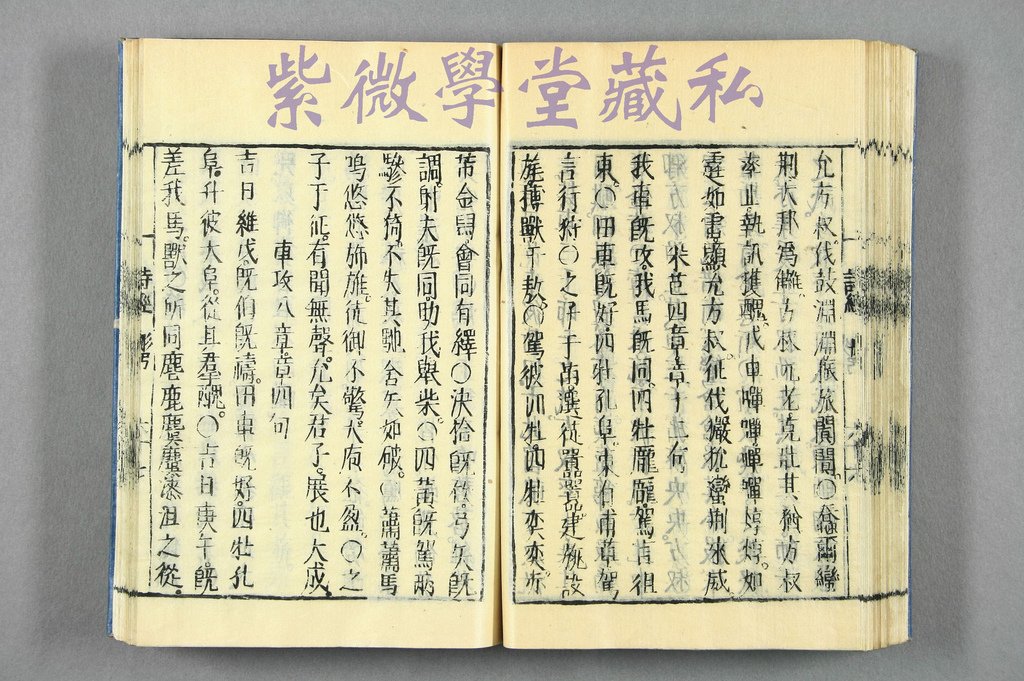 紫微學堂藏私
允方叔伐鼓淵淵振旅闐闐〇蠢爾蠻
荆大邦爲讎方叔元老克壯其猶方叔
率止執訊獲醜戎車嘽嘽嘽嘽焞焞如
霆如雷顯允方叔征伐玁狁蠻荆來威
采芑四章章十二句
我車旣攻我馬旣同四牡龐龐駕言徂
東。〇田車旣好四牡孔阜東有甫草駕
言行狩〇之子于苗選徒囂囂建旐設
旄搏獸于敖。〇駕彼四牡四牡奕奕赤
芾金舄會同有繹〇決拾旣佽弓矢旣
調射夫旣同助我舉柴。〇四黃旣駕兩
驂不猗不失其馳舍矢如破。蕭蕭馬
鳴悠悠斾旌徒御不驚大庖不盈。〇之
子于征有聞無聲允矣君子展也大成
車攻八章章四句
吉日維戊旣伯旣禱田車旣好四牡孔
阜升彼大阜從其羣醜。〇吉日庚午旣
差我馬獸之所同麀鹿麌麌漆沮之從
詩經 彤弓